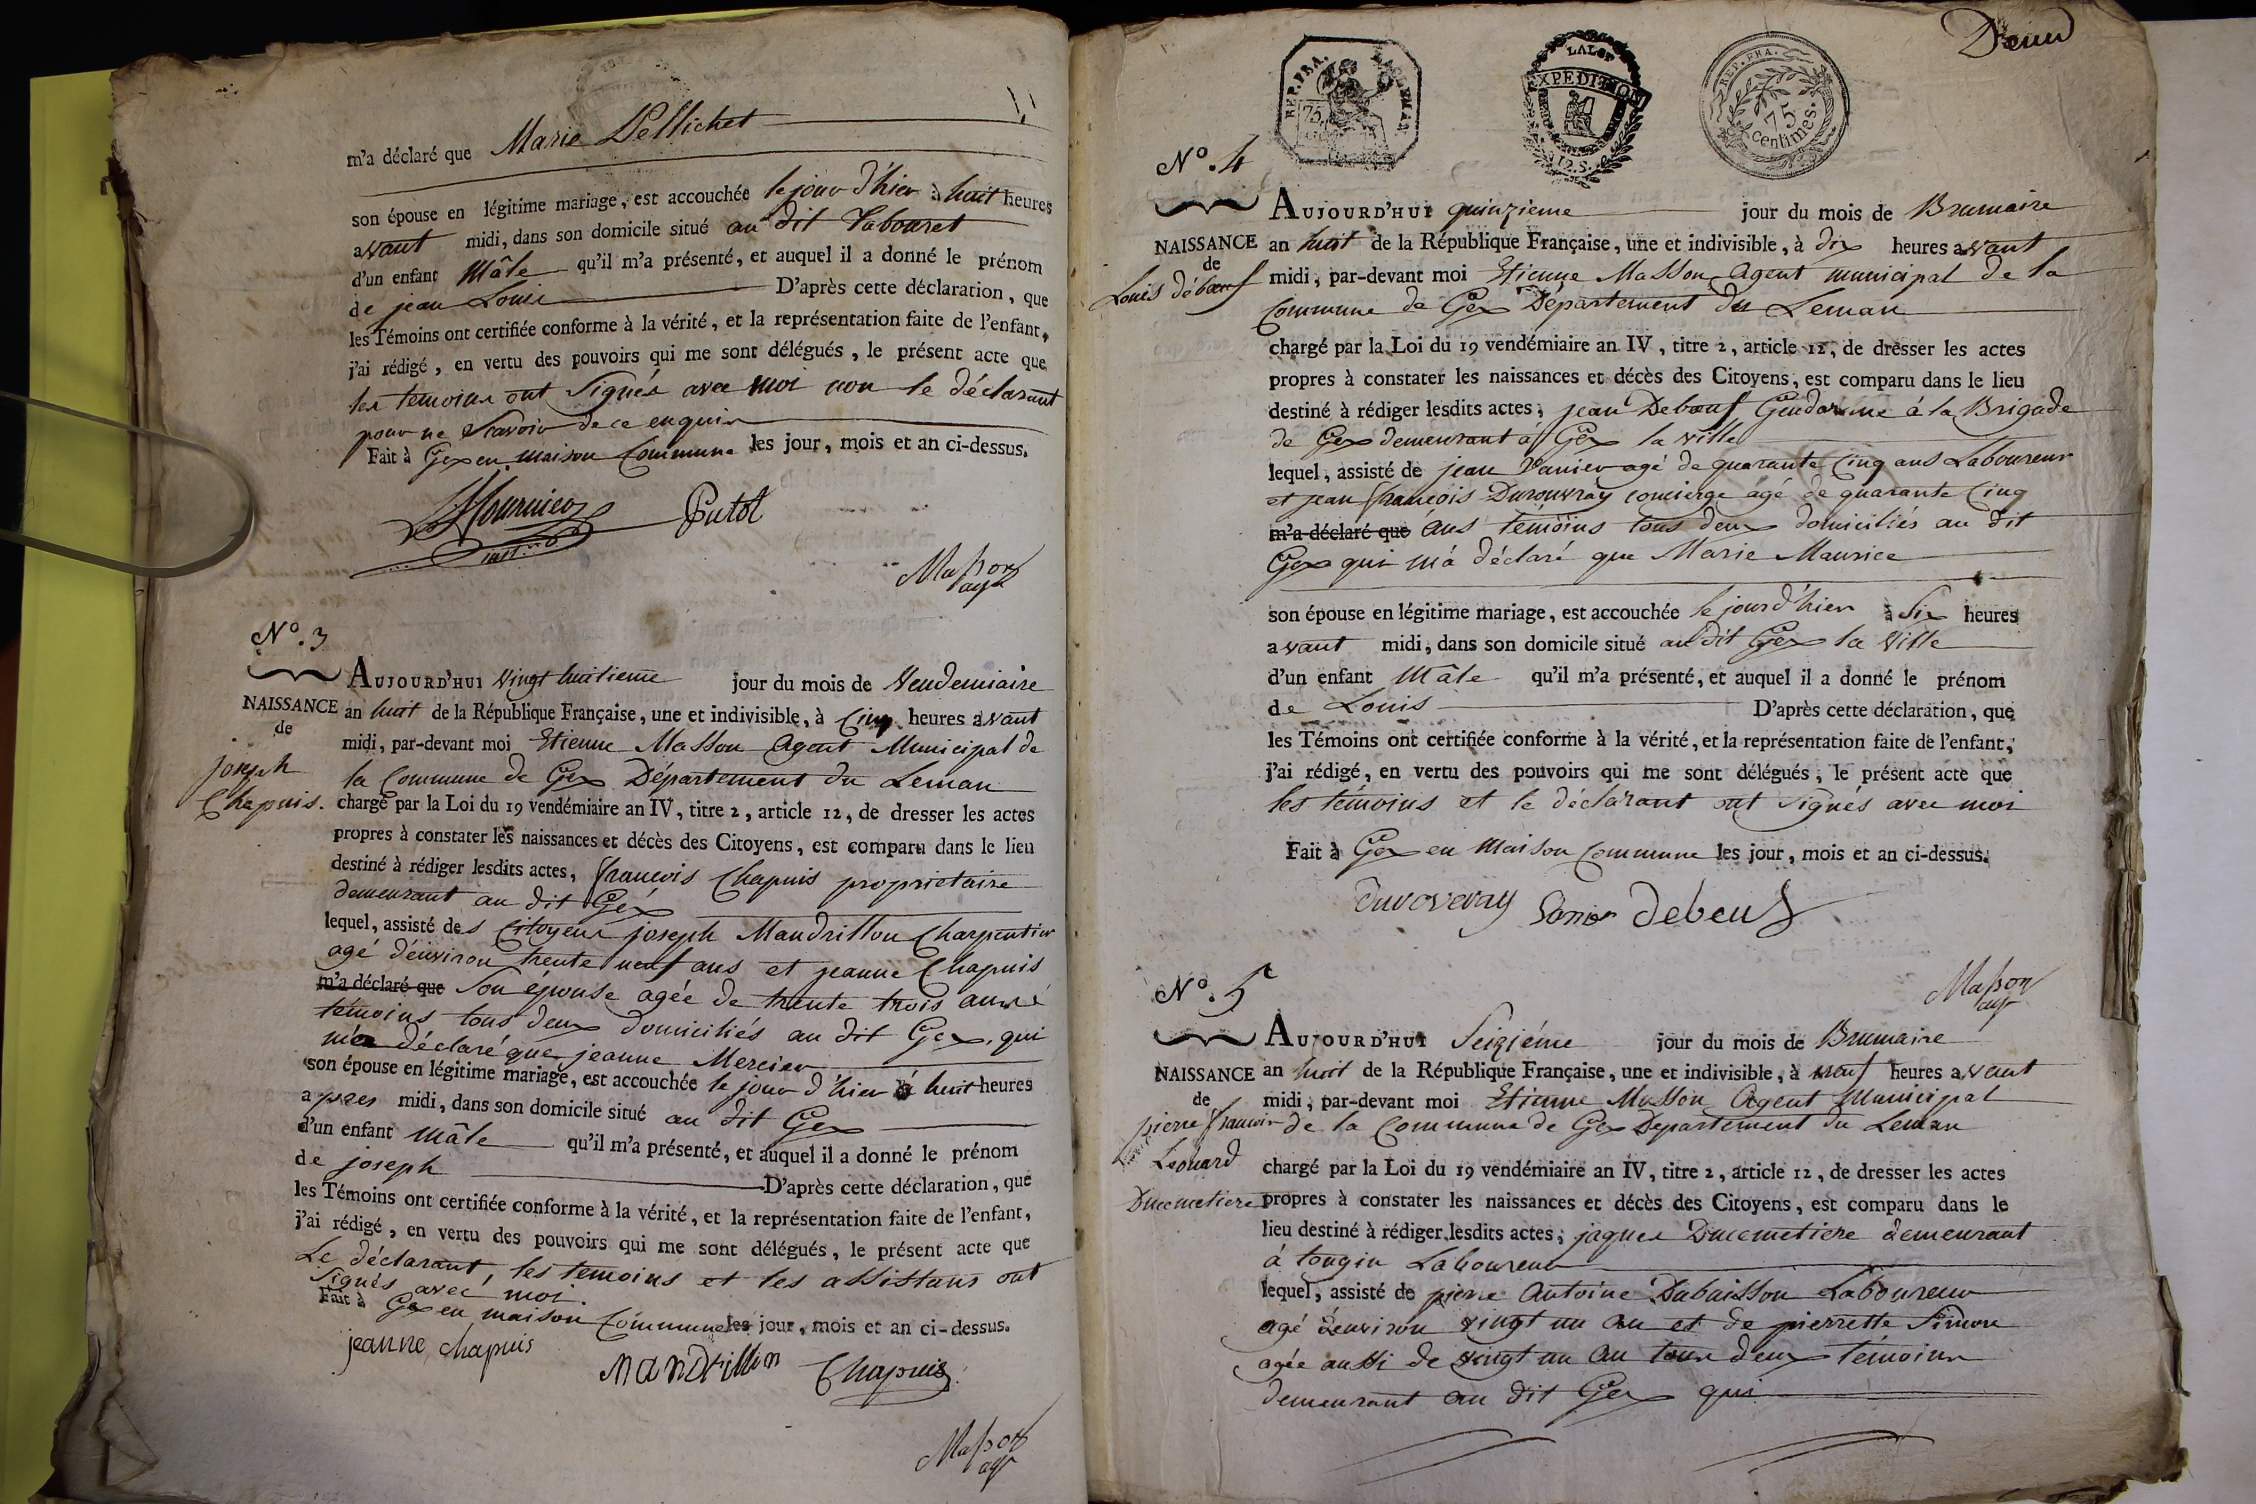 m'a déclaré que Marie Pellichet
son épouse en légitime mariage, est accouchée le jour d'hier à huit heures
avant midi, dans son domicile situé au dit Tabouret
d'un enfant Mâle qu'il m'a présenté, et auquel il a donné le prénom
de jean Louis D'après cette déclaration, que
les Témoins ont certifiée conforme à la vérité, et la représentation faite de l'enfant,
j'ai rédigé, en vertu des pouvoirs qui me sont délégués, le présent acte que
les temoins ont Signés avec moi non le déclarant
pour ne Scavoir de ce enquis
Fait à Gex en maison Commune les jour, mois et an ci-dessus.
Fournier Putot
Masson
agt
N°. 3
AUJOURD'HUI vingt huitieme jour du mois de Vendemiaire
NAISSANCE an huit de la République Française, une et indivisible, à Cinq heures avant
de
midi, par-devant moi Etienne Masson Agent Municipal de
joseph
la Commune de Gex Département du Leman
Chapuis. chargé par la Loi du 19 vendémiaire an IV, titre 2, article 12, de dresser les actes
propres à constater les naissances et décès des Citoyens, est comparu dans le lieu
destiné à rédiger lesdits actes, françois Chapuis proprietaire
demeurant au dit Gex
lequel, assisté des Citoyens joseph Mandrillon Charpentier
agé d'environ trente neuf ans et jeanne Chapuis
m'a déclaré que Son épouse agée de trente trois
témoins tous deux domiciliés au dit Gex, qui
m'a déclaré que jeanne Mercier
son épouse en légitime mariage, est accouchée le jour d'hier à huit heures
apres midi, dans son domicile situé au dit Gex
d'un enfant Mâle qu'il m'a présenté, et auquel il a donné le prénom
de joseph D'après cette déclaration, que
les Témoins ont certifiée conforme à la vérité, et la représentation faite de l'enfant,
j'ai rédigé, en vertu des pouvoirs qui me sont délégués, le présent acte que
Le déclarant, les temoins et les assistans ont
Signés avec moi.
Fait à Gex en maison Commune les jour, mois et an ci-dessus.
jeanne chapuis mandrillon Chapuis
Masson
agt
Deux
REP. FRA. 75
LALOI EXPEDITION
REP. FRA. 75 centimes.
N°. 4
AUJOURD'HUI quinzieme jour du mois de Brumaire
NAISSANCE an huit de la République Française, une et indivisible, à dix heures avant
de
Louis débœuf midi, par-devant moi Etienne Masson Agent municipal de la
Commune de Gex Département du Leman
chargé par la Loi du 19 vendémiaire an IV, titre 2, article 12, de dresser les actes
propres à constater les naissances et décès des Citoyens, est comparu dans le lieu
destiné à rédiger lesdits actes, jean Debœuf Gendarme à la Brigade
de Gex demeurant à Gex la ville
lequel, assisté de jean Vanier agé de quarante Cinq ans Laboureur
et jean françois Durouvray concierge agé de quarante Cinq
m'a déclaré que ans temoins tous deux domiciliés au dit
Gex qui m'a déclaré que Marie Maurice
son épouse en légitime mariage, est accouchée le jour d'hier à Six heures
avant midi, dans son domicile situé au dit Gex la ville
d'un enfant Mâle qu'il m'a présenté, et auquel il a donné le prénom
de Louis D'après cette déclaration, que
les Témoins ont certifiée conforme à la vérité, et la représentation faite de l'enfant,
j'ai rédigé, en vertu des pouvoirs qui me sont délégués, le présent acte que
les témoins et le déclarant ont signés avec moi
Fait à Gex en maison Commune les jour, mois et an ci-dessus.
Durovvray debeuf
Masson
agt
N°. 5
AUJOURD'HUI Seiziéme jour du mois de Brumaire
NAISSANCE an huit de la République Française, une et indivisible, à neuf heures avant
de midi, par-devant moi Etienne Masson Agent Municipal
pierre francois de la Commune de Gex Departement du Leman
Léonard chargé par la Loi du 19 vendémiaire an IV, titre 2, article 12, de dresser les actes
Ducimetiere propres à constater les naissances et décès des Citoyens, est comparu dans le
lieu destiné à rédiger lesdits actes, jaques Ducimetiere demeurant
à tougin Laboureur
lequel, assisté de pierre Antoine Dubaisson Laboureur
agé d'environ vingt un an et de pierrette Simon
agée aussi de vingt un an tous deux témoins
demeurant au dit Gex qui